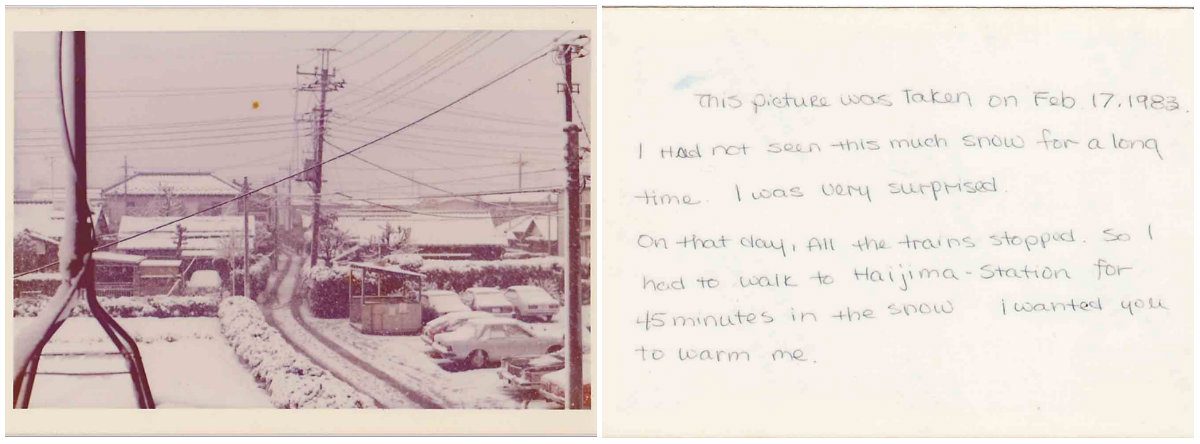 This picture was Taken on Feb 17, 1983.
I Had not seen this much snow for a long
time. I was very surprised.
On that day, All the trains stopped. So I
had to walk to Haijima-Station for
45 minutes in the snow I wanted you
to warm me.